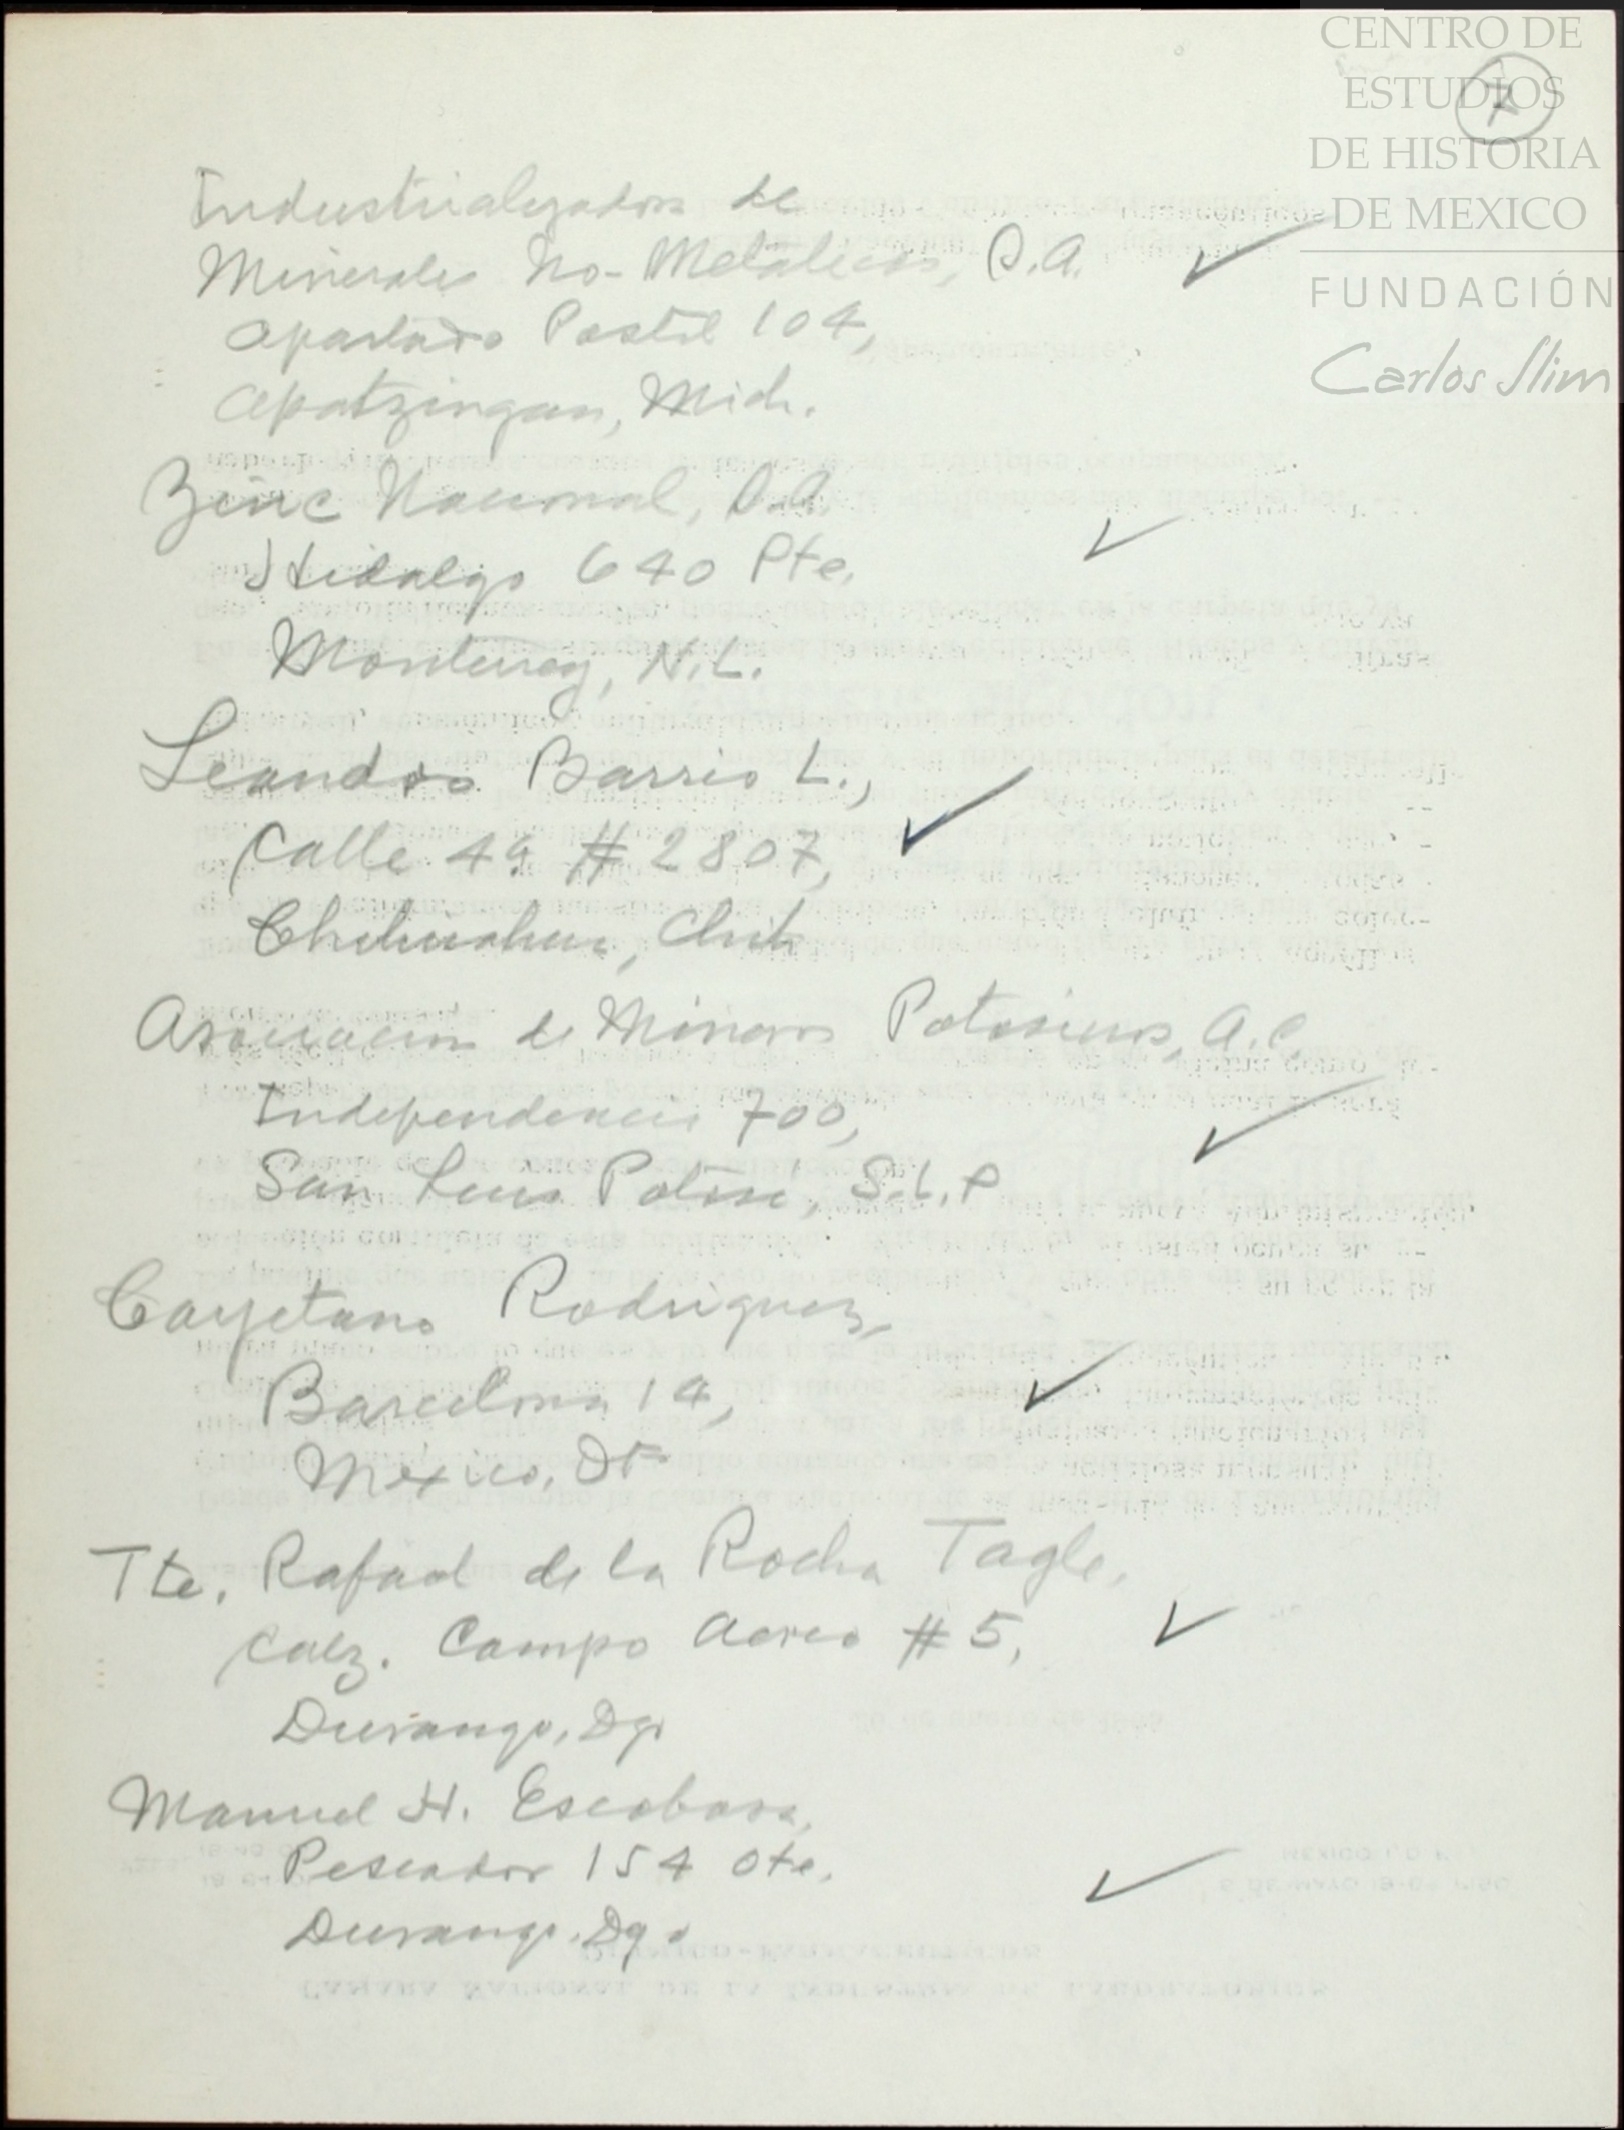 CENTRO DE
ESTUDIOS
DE HISTORIA
DE MEXICO
FUNDACIÓN
Carlos Slim
Industrializadora de
Minerales No-Metálicos, S.A.
Apartado Postal 104,
Apatzingan, Mich.
Zinc Nacional, S.A.
Hidalgo 640 Pte.
Monterrey, N.L.
Leandro Barrio L.,
Calle 49 # 2807,
Chihuahua, Chih
Asociacion de Mineros Potosinos, A.C.
Independencia 700,
San Luis Potosí, S.L.P
Cayetano Rodriguez,
Barcelona 14,
México, DF
Tte. Rafael de la Rocha Tagle,
Calz. Campo Aereo # 5,
Durango, Dgo
Manuel H. Escobosa,
Pescador 154 Ote.
Durango, Dgo